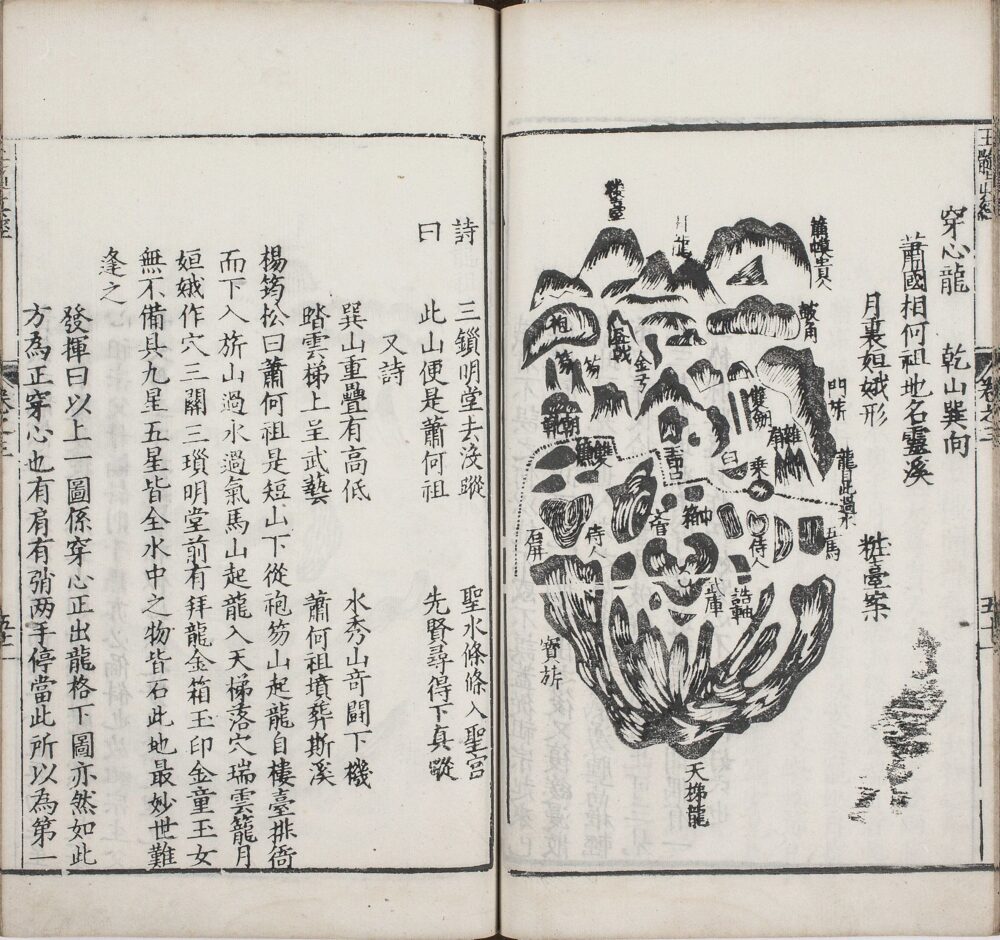 穿心龍　乾山巽向
蕭國相何祖地名靈溪
月裏姮娥形
粧臺案
樓臺
貴人
鼓角
祖
笏
笏
金子
雙劍
朝
雙
臼
乗
龍自此過水
侍人
侍人
五馬
石屏
庫
誥軸
寶旂
天梯龍
詩
曰
三鎖明堂去沒蹤　聖水條條入聖宮
此山便是蕭何祖　先賢尋得下真蹤
又詩
巽山重疊有高低　水秀山奇闘下機
踏雲梯上呈武藝　蕭何祖墳葬斯溪
楊筠松曰蕭何祖是短山下從袍笏山起龍自樓臺排衙
而下入旂山過水過氣馬山起龍入天梯落穴瑞雲籠月
姮娥作穴三關三瑣明堂前有拜龍金箱玉印金童玉女
無不備具九星五星皆全水中之物皆石此地最妙世難
逢之
發揮曰以上一圖係穿心正出龍格下圖亦然如此
方為正穿心也有肩有弰两手停當此所以為第一